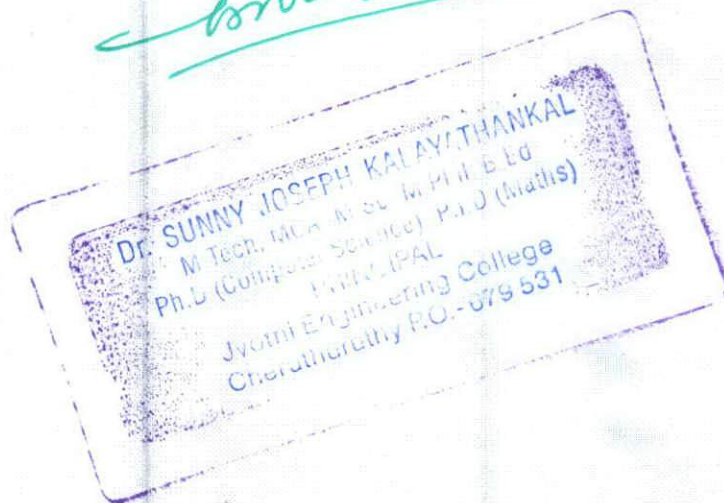 Dr. SUNNY JOSEPH KALAYATHANKAL
M Tech, MCA, M Sc, M Phil, B Ed
Ph.D (Computer Science) Ph.D (Maths)
PRINCIPAL
Jyothi Engineering College
Cheruthuruthy P.O.- 679 531